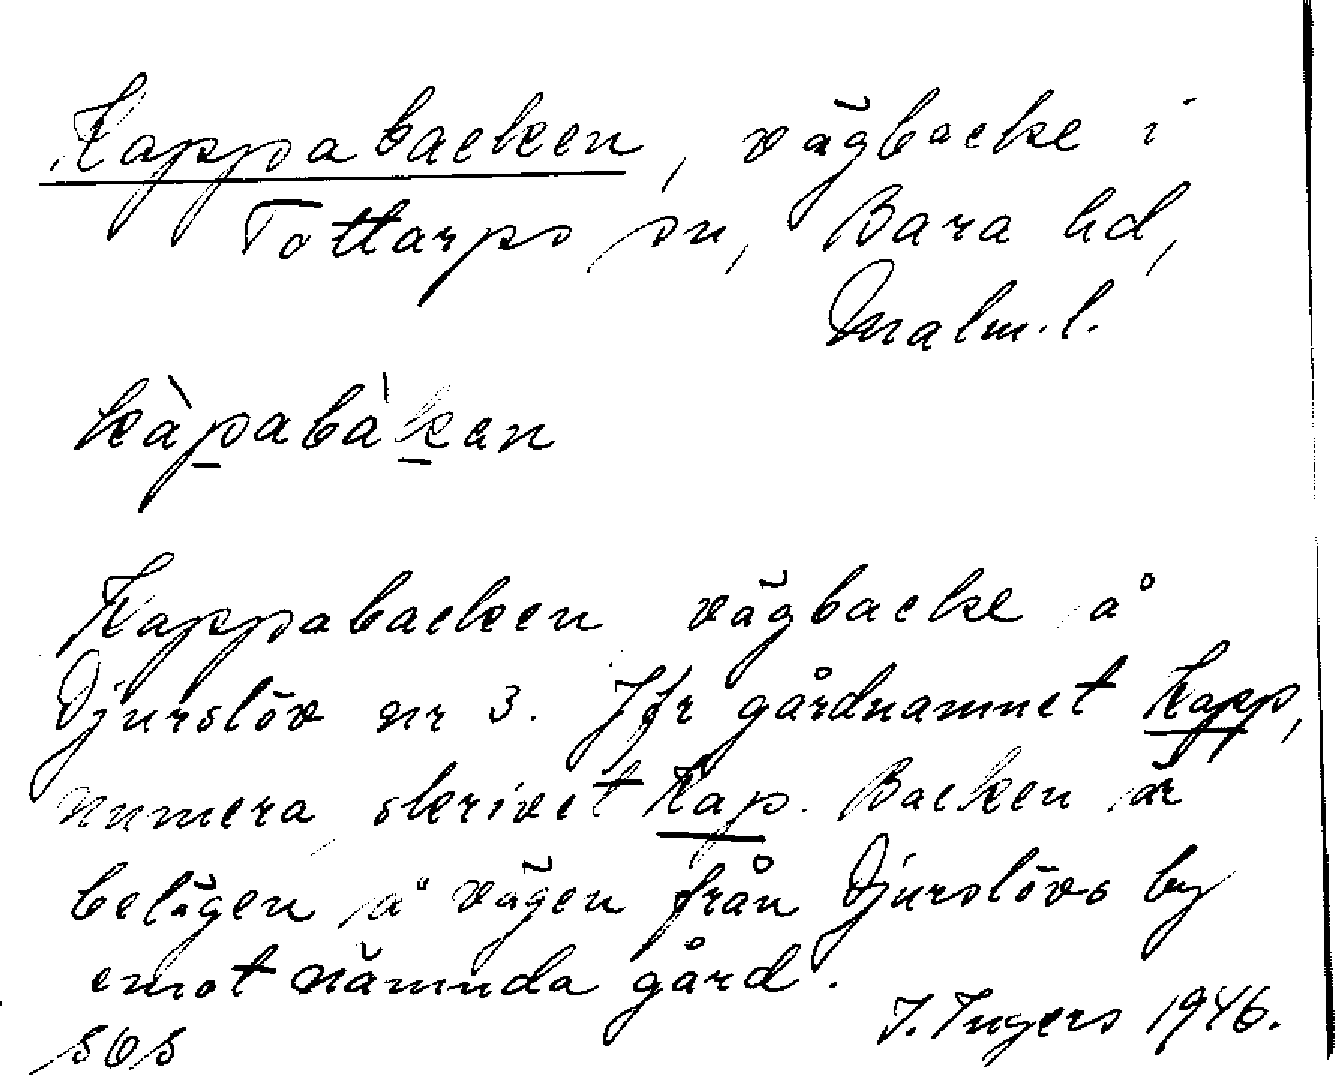 Kappabacken, vägbacke i
Tottarps sn, Bara hd,
Malm.l.
kàpabàkan
Kappabacken vägbacke å
Djurslöv nr 3. Jfr gårdnamnet Kapp,
numera skrivet Kap. Backen är
belägen å vägen från Djurslövs by
emot nämnda gård.
I. Ingers 1946.